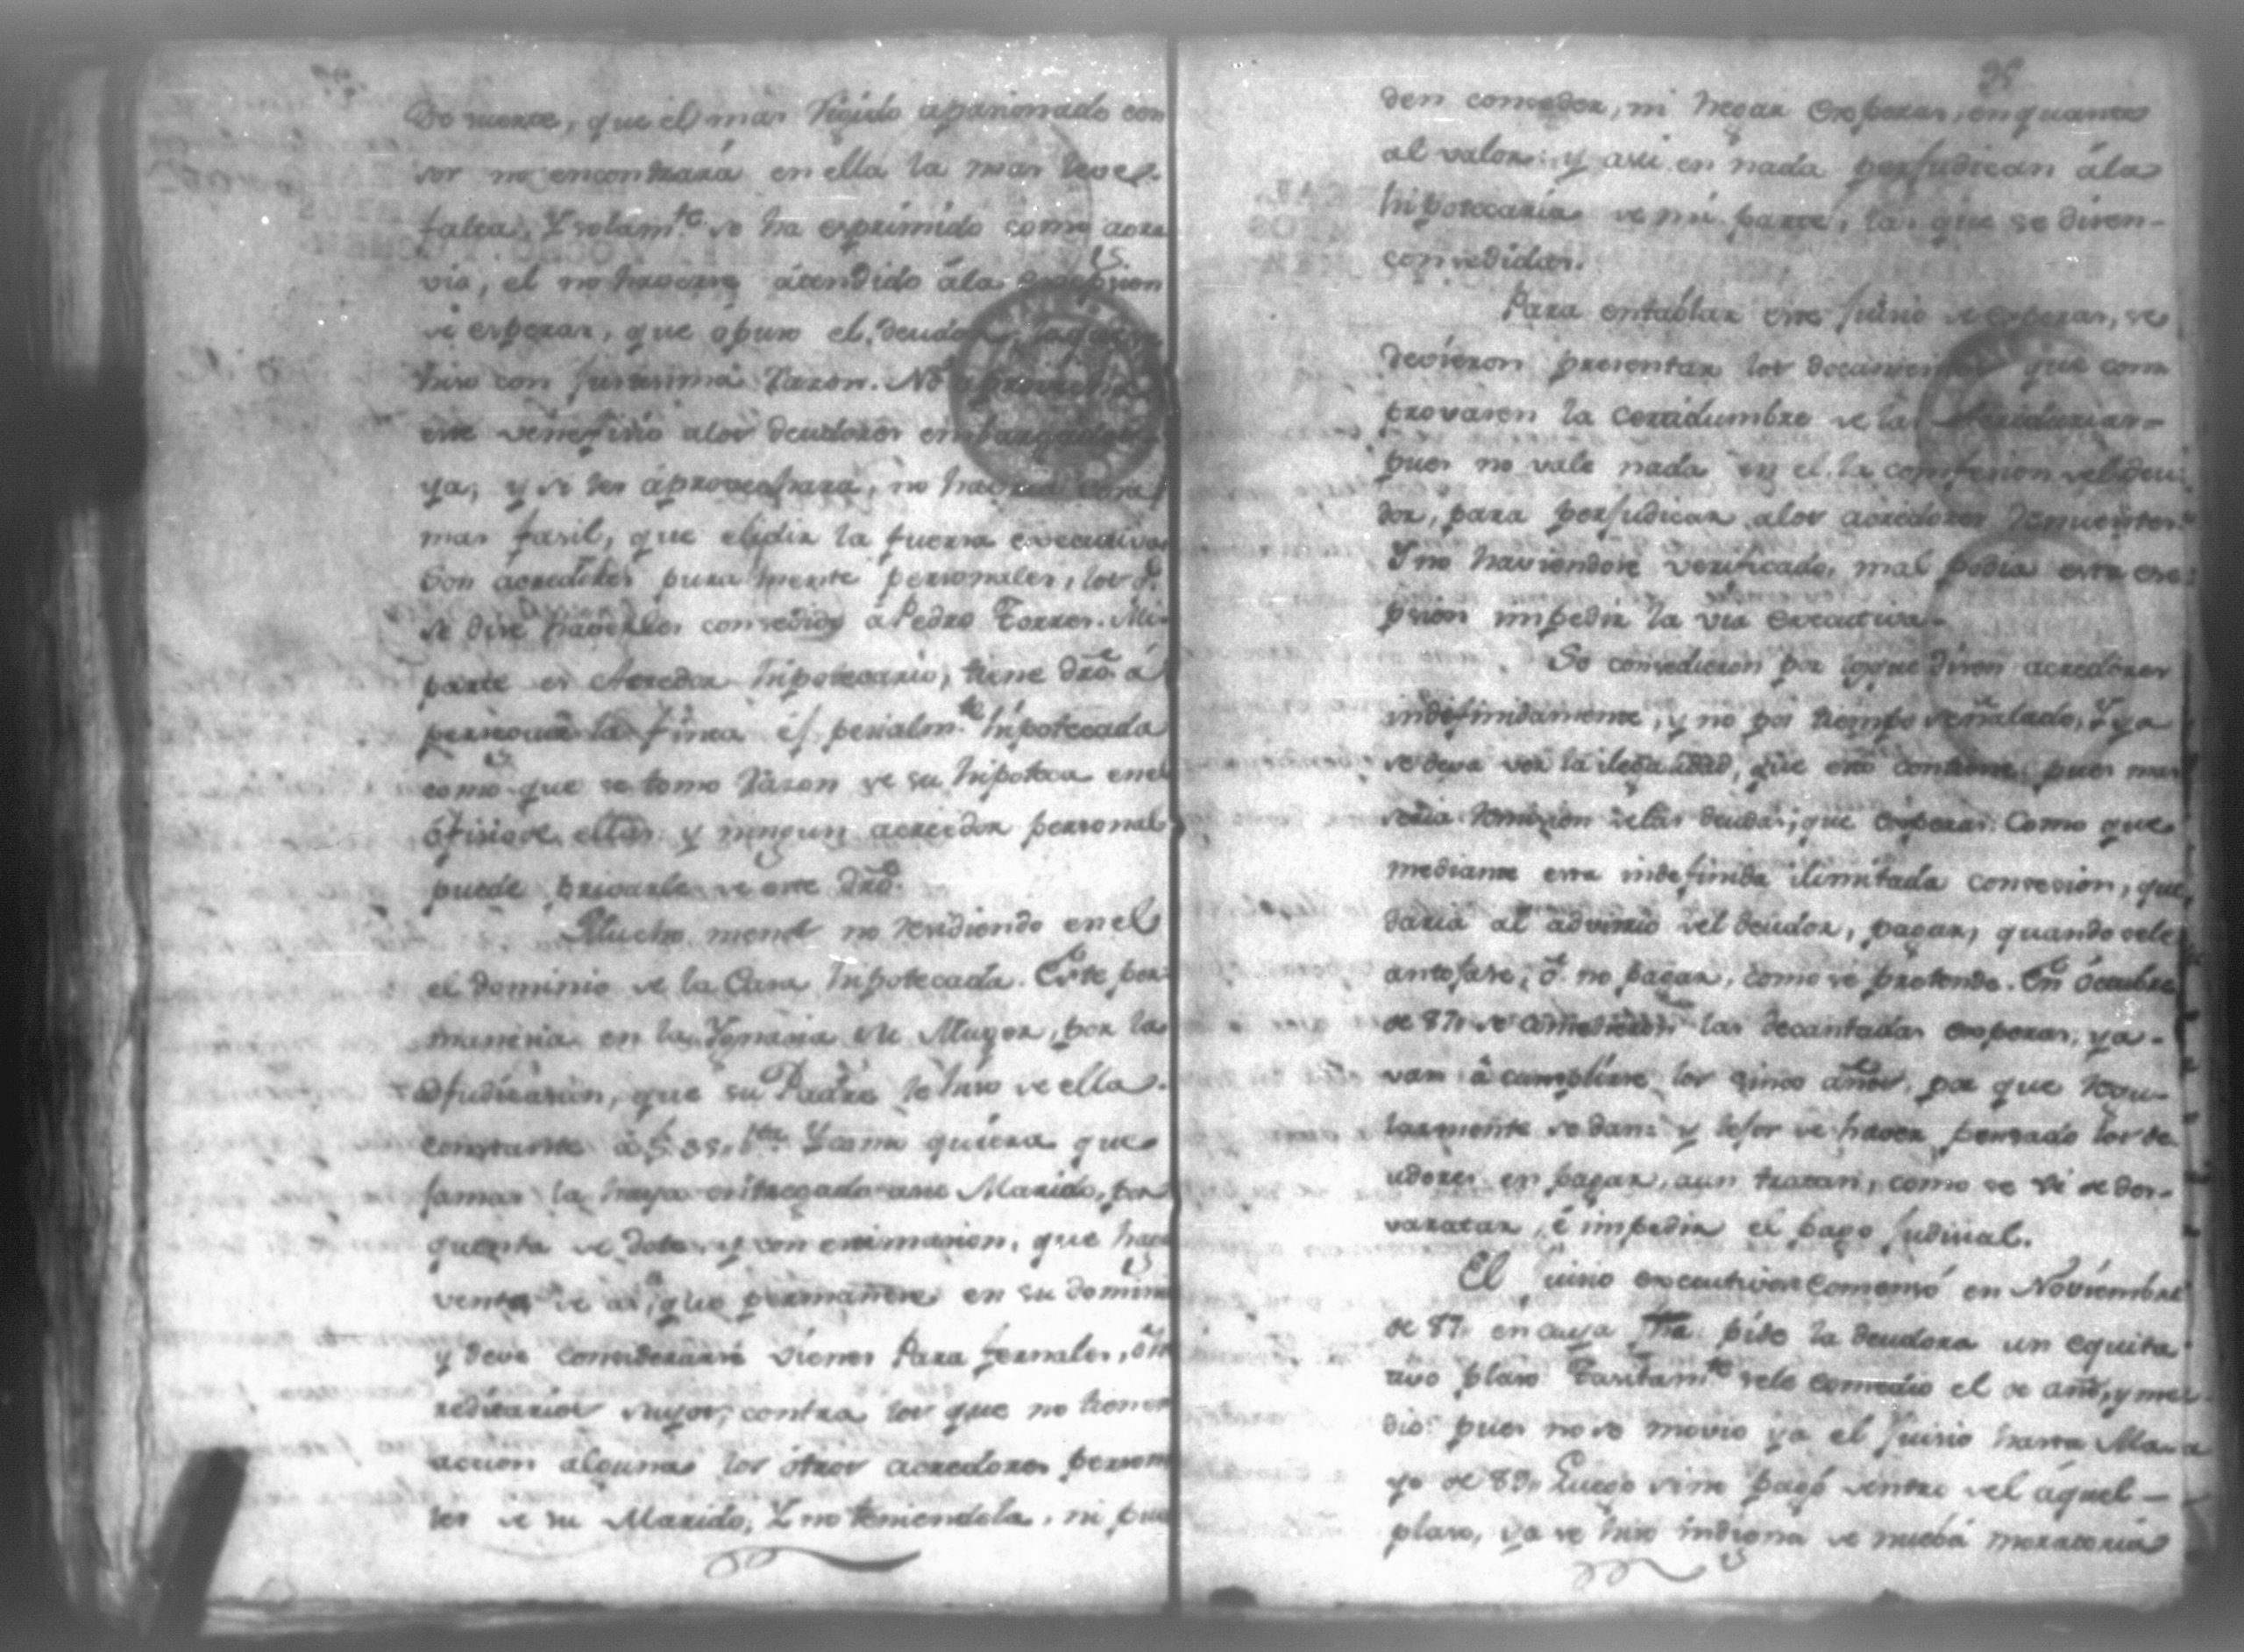 De suerte, que el mas rigido apasionado cen
sor no encontrará en ella la mas leve
falta. Y solam.te se ha exprimido como agra
vio, el no haverse atendido á la excepcion
de esperas, que opuso el deudor
hiso con justisima razon. No
este venefisio a los deudores embargados
ya, y si les aprovechara, no havria cosa
mas fasil, que elidir la fuersa executiva
Son acredores pura mente personales, los q.e
se dise haverlas consedido á Pedro Torres. Mi
parte es Acredor hipotecario, tiene dro. á
perseguir la finca espesialm.te hipotecada
como que se tomo razon de su hipoteca en el
ofisio de ellas y ningun acreedor personal
puede privarle de este dro.
Mucho menos no residiendo en el
el dominio de la Casa hipotecada. Este per
manesia en la Ignasia su Muger, por la
adjudicasion, que su Padre le hiso de ella
constante á f. 35. Y como quiera que
jamas la haya entregado a su Marido, por
quenta de dote, y con estimasion, que haga
venta de ai, que permanese en su domini
y deve considerarse vienes Parafernales, ó he
reditarios suyos, contra los que no tienen
accion alguna los otros acredores persona
les de su Marido, Y no teniendola, ni pue
35
den conseder, ni negar esperas, en quanto
al valor: y asi en nada perjudican á la
hipotecaria de mi parte, las que se disen
consedidas.
Para entablar este juisio de esperas, se
devieron presentar los documentos que com
provasen la certidumbre de las
pues no vale nada en el la confesion del deu
dor, para perjudicar a los acredores
Y no haviendose verificado, mal podia esta exe
psion impedir la via executiva.
Se consedieron por los que disen acredores
indefinidamente, y no por tiempo señalado, y ya
se deva ver la ilegalidad, que esto contiene, pues mas
seria remision de las deudas, que esperas. Como que
mediante esta indefinida ilimitada consesion, que
daria al advitrio del deudor, pagar, quando se le
antojase, ó no pagar, como se pretende. En Octubre
de 87. se consedieron las decantadas esperas, ya
van á cumplirse los sinco años, por que regu
larmente se dan: y lejos de haver pensado los de
udores en pagar, aun tratan, como se ve de des
varatar, é impedir el pago judisial.
El juisio executivo se comensó en Noviembre
de 87. en cuya pide la deudora un equita
tivo plaso. Tasitam.te se le consedio el de año, y me
dio: pues no se movio ya el juisio hasta Ma
yo de 89. Luego si no pagó dentro del aquel
plaso, ya se hiso indigna de nueba moratoria